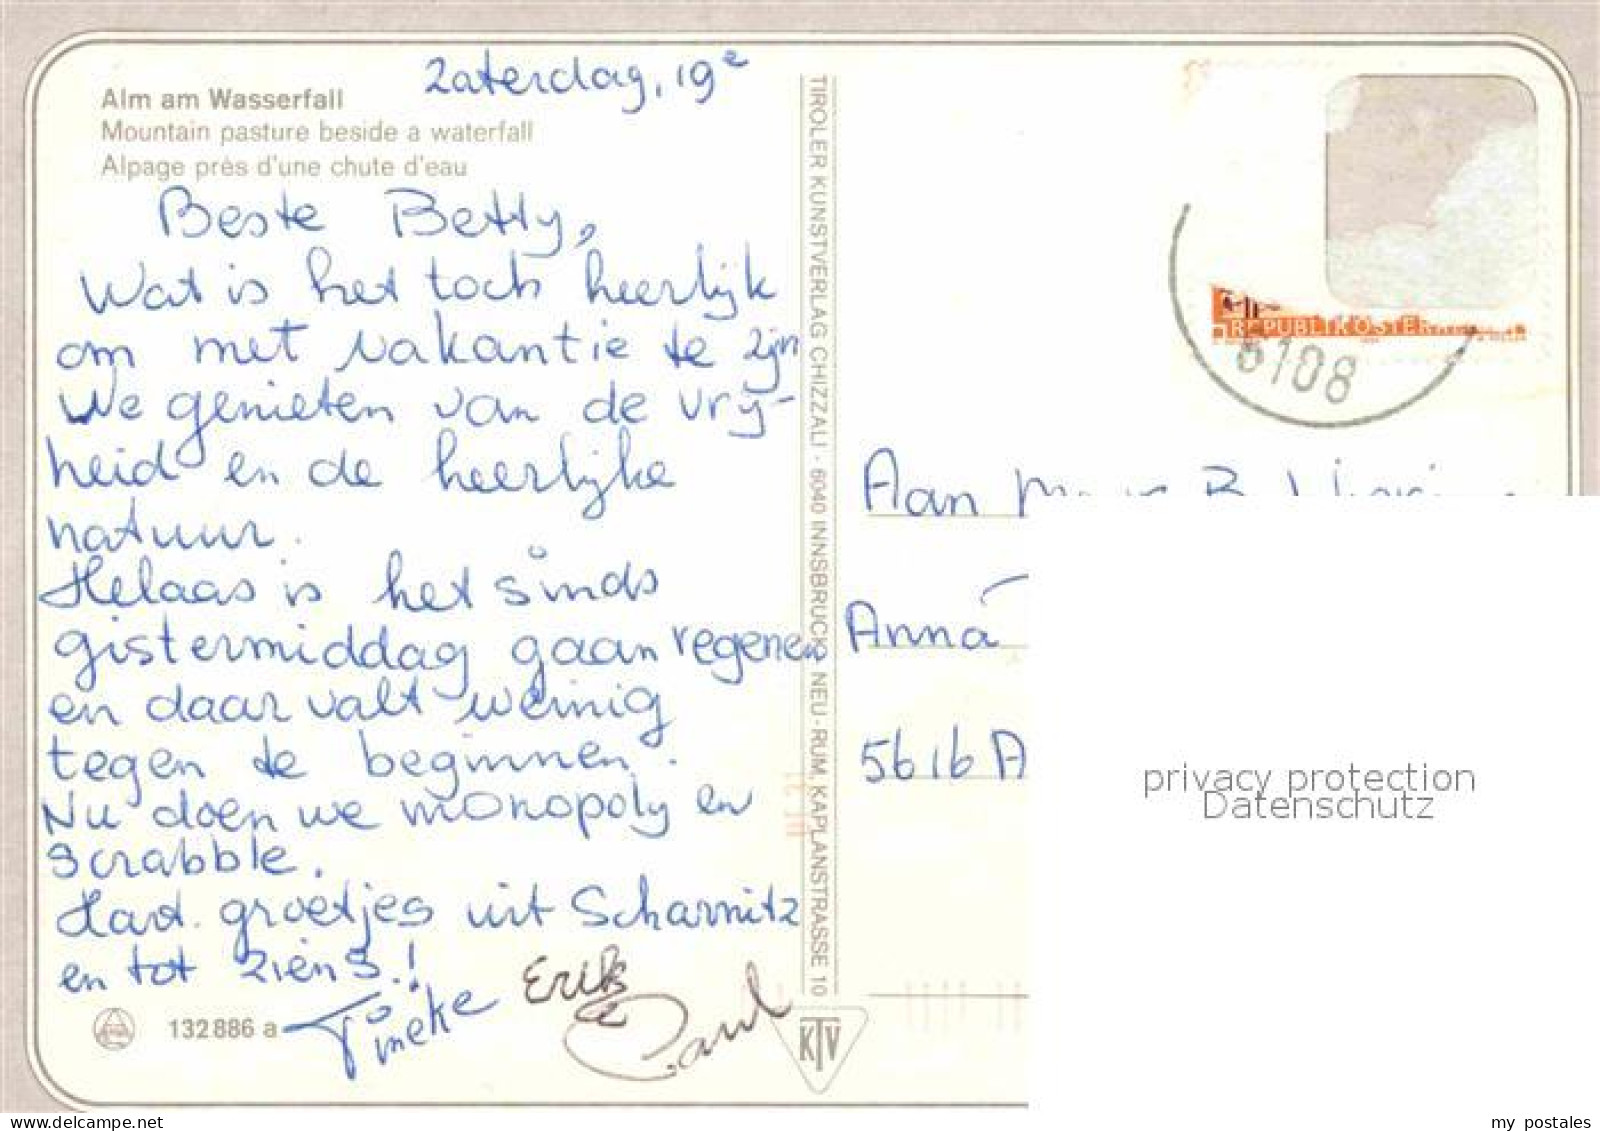 Zaterdag, 19e
Alm am Wasserfall
Mountain pasture beside a waterfall
Alpage près d'une chute d'eau
Beste Betty,
Wat is het toch heerlijk
om met vakantie te zijn
We genieten van de vrij-
heid en de heerlijke
natuur.
Helaas is het sinds
gistermiddag gaan regenen
en daar valt weinig
tegen te beginnen.
Nu doen we monopoly en
scrabble.
Hart. groetjes uit Scharnitz
en tot ziens.!
Tineke
Erik
Paul
132886 a
TIROLER KUNSTVERLAG CHIZZALI · 6040 INNSBRUCK, NEU-RUM, KAPLANSTRASSE 10
KTV
REPUBLIK ÖSTERREICH
6108
Aan
Anna
5616 A
privacy protection
Datenschutz
my postales
delcampe.net